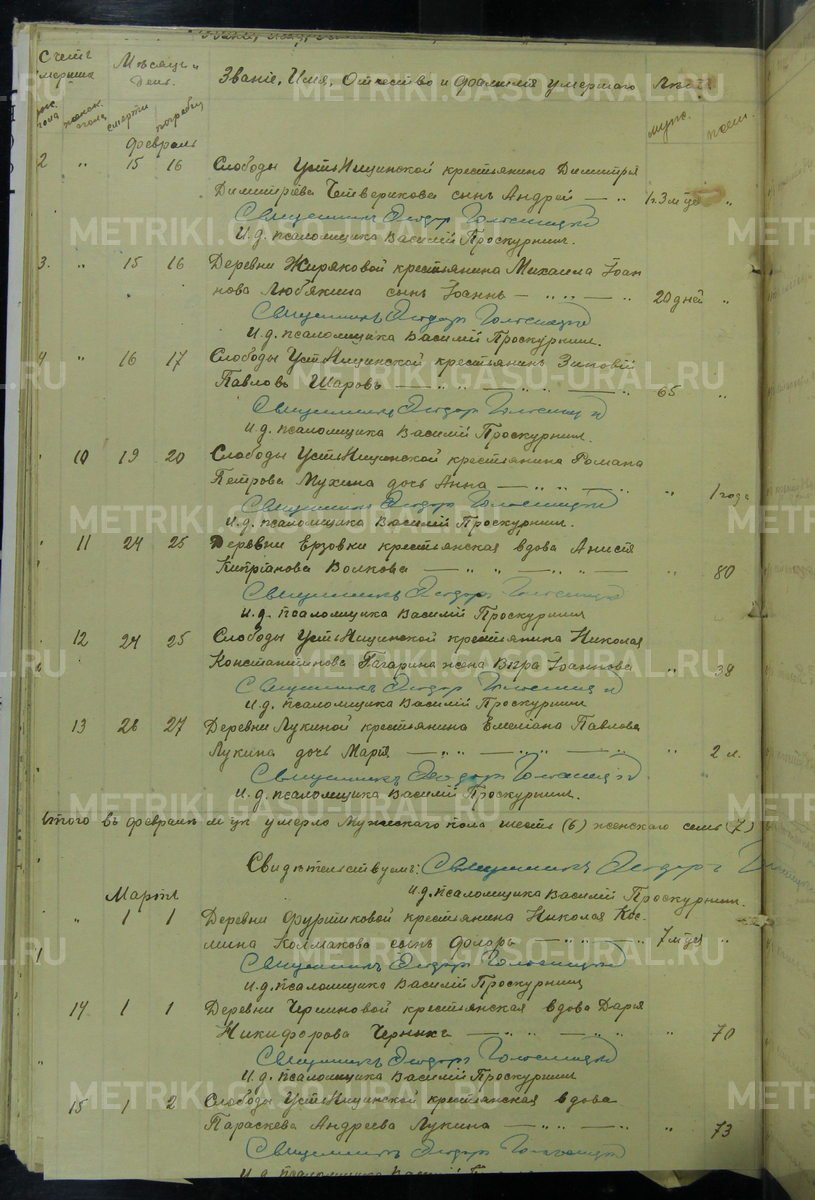 Счетъ умершихъ
Мѣсяцъ и день.
Званіе, Имя, Отчество и фамилія умершаго
Лѣта
муж. пола
женск. пола
смерти
погребен.
муж.
жен.
Февраль
2 „ 15 16 Слободы Усть Ницинской крестьянина Димитрія
Димитріева Четверикова сынъ Андрей — „ 1 г. 3 м-ца „
Священникъ Ѳеодоръ
И.д. псаломщика Василій Проскурнин.
3. „ 15 16 Деревни Жиряковой крестьянина Михаила Іоан
нова Любякина сынъ Іоаннъ — „ „ — „ 20 дней „
Священникъ Ѳеодоръ
И.д. псаломщика Василій Проскурнин.
4 „ 16 17 Слободы Усть Ницинской крестьянинъ Зиновій
Павловъ Шаровъ — „ „ — „ 65 „
Священникъ Ѳеодоръ
И.д. псаломщика Василій Проскурнин.
10 19 20 Слободы Усть Ницинской крестьянина Романа
Петрова Мухина дочь Анна — „ „ — „ „ 1 года
Священникъ Ѳеодоръ
И.д. псаломщика Василій Проскурнин.
11 24 25 Деревни Ерзовки крестьянская вдова Анисія
Кипріанова Волкова — „ „ — „ „ — „ 80
Священникъ Ѳеодоръ
И.д. псаломщика Василій Проскурнин
12 24 25 Слободы Усть Ницинской крестьянина Николая
Константинова Гагарина жена Вѣра Іоаннова „ 38
Священникъ Ѳеодоръ
И.д. псаломщика Василій Проскурнин
13 26 27 Деревни Лукиной крестьянина Емеліана Павлова
Лукина дочь Марія — „ „ — „ „ — „ „ 2 л.
Священникъ Ѳеодоръ
И.д. псаломщика Василій Проскурнин.
Итого въ февралѣ м-цѣ умерло Мужскаго пола шесть (6) женскаго семь (7)
Свидѣтельствуемъ: Священникъ Ѳеодоръ
И.д. псаломщика Василій Проскурнин.
Мартъ
„ 1 1 Деревни Фуртиковой крестьянина Николая Кос
мина Колмакова сынъ Ѳедоръ — „ „ — „ 7 м-ца „
Священникъ Ѳеодоръ
И.д. псаломщика Василій Проскурнин
14 1 1 Деревни Черемновой крестьянская вдова Дарья
Никифорова Черныхъ — „ „ — „ „ „ 70
Священникъ Ѳеодоръ
И.д. псаломщика Василій Проскурнин
15 1 2 Слободы Усть Ницинской крестьянская вдова
Параскева Андреева Лукина — „ „ — „ „ 73
Священникъ Ѳеодоръ
И.д. псаломщика Василій
METRIKI.GASO-URAL.RU